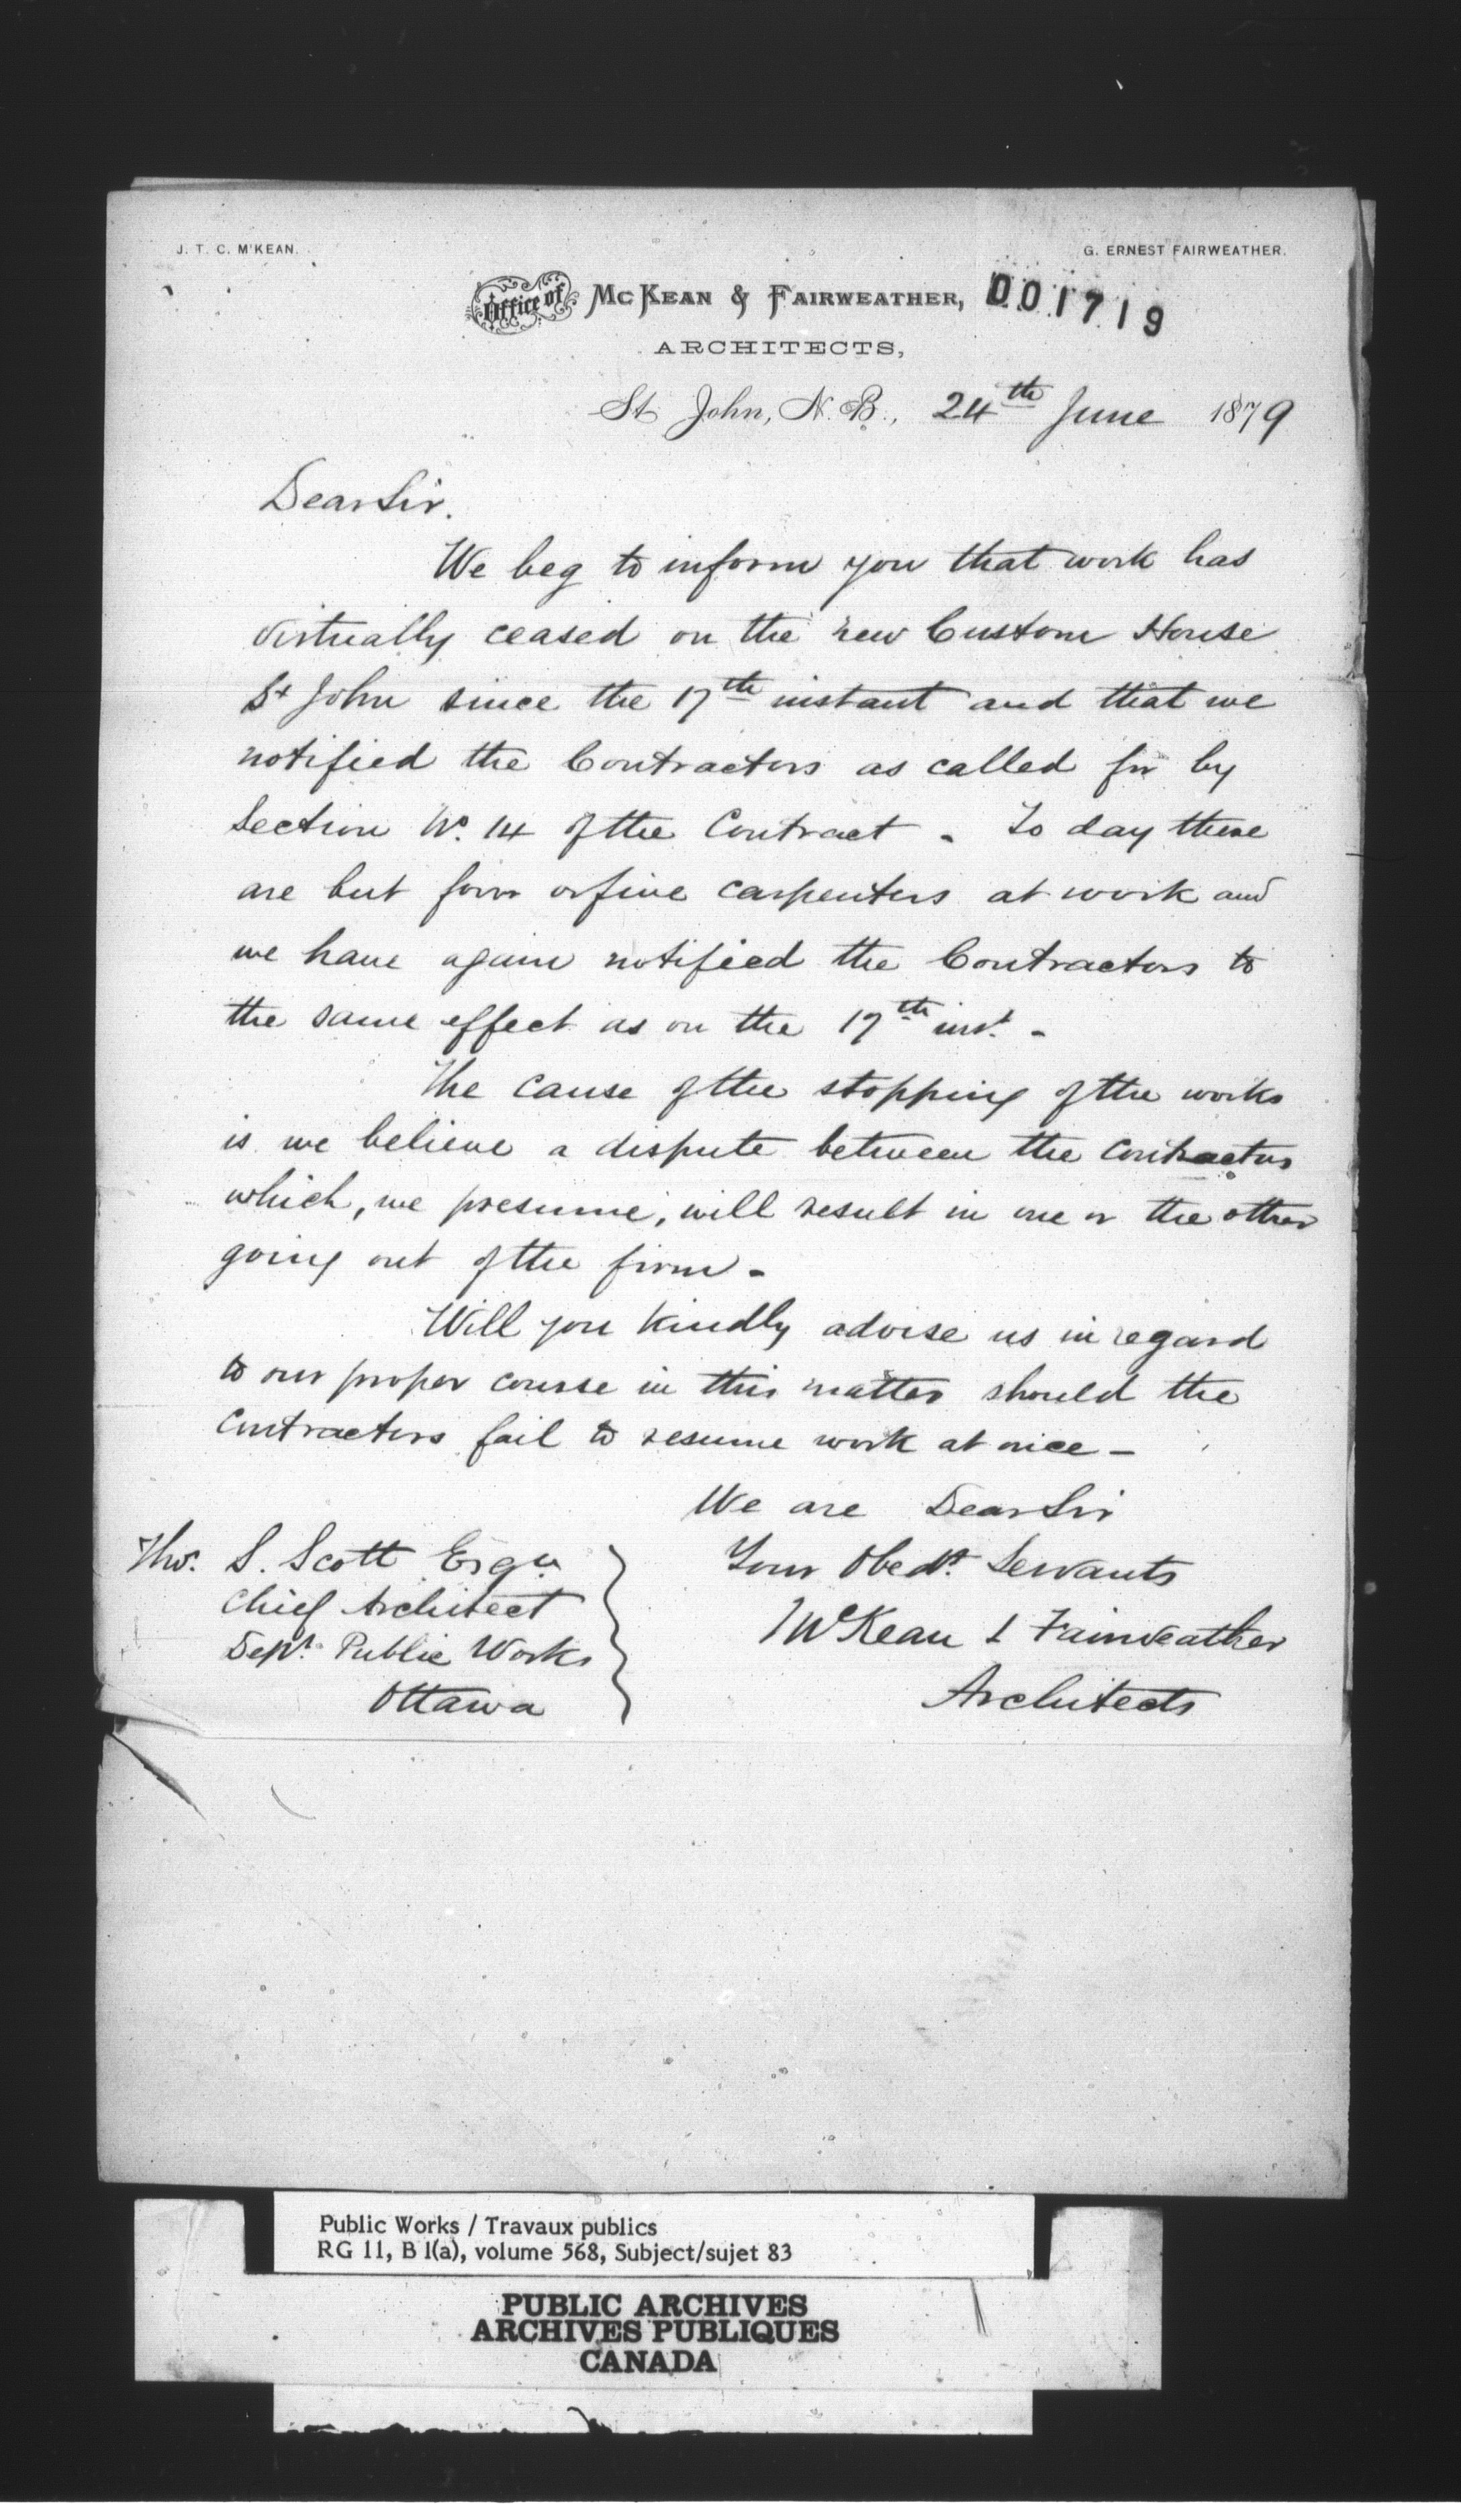 J. T. C. M'KEAN.
G. ERNEST FAIRWEATHER.
Office of McKean & Fairweather,
001719
ARCHITECTS,
St John, N. B., 24th June 1879
Dear Sir.
We beg to inform you that work has
virtually ceased on the new Custom House
St John since the 17th instant and that we
notified the Contractors as called for by
Section No. 14 of the Contract - To day there
are but four or five carpenters at work and
we have again notified the Contractors to
the same effect as on the 17th inst. -
The cause of the stopping of the works
is we believe a dispute between the contractors
which, we presume, will result in one or the other
going out of the firm -
Will you kindly advise us in regard
to our proper course in this matter should the
contractors fail to resume work at once -
We are Dear Sir
Your Obedt. Servants
McKean & Fairweather
Architects
Thos. S. Scott Esqre.
Chief Architect
Dept. Public Works
Ottawa
Public Works / Travaux publics
RG 11, B 1(a), volume 568, Subject/sujet 83
PUBLIC ARCHIVES
ARCHIVES PUBLIQUES
CANADA